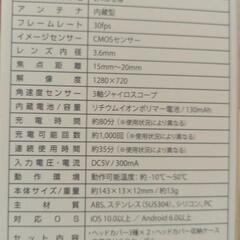 アンテナ 内蔵型
フレームレート 30fps
イメージセンサー CMOSセンサー
レンズ内径 3.6mm
焦点距離 15mm~20mm
解像度 1280×720
角速度センサー 3軸ジャイロスコープ
内蔵電池/容量 リチウムイオンポリマー電池/130mAh
充電時間 約80分(※使用状況により異なる)
充電可能回数 約1,000回(※使用状況により異なる)
連続使用時間 約35分(※使用状況により異なる)
入力電圧・電流 DC5V/300mA
動作環境 動作可能温度:-10℃~50℃
本体サイズ/重量 約143×13×12mm/約13g
主材質 ABS、ステンレス(SUS304)、シリコン、PC
対応OS iOS 10.0以上/Android 6.0以上
セット内容 ・ヘッドカバー3種×2・ヘッドカバー収納ケース